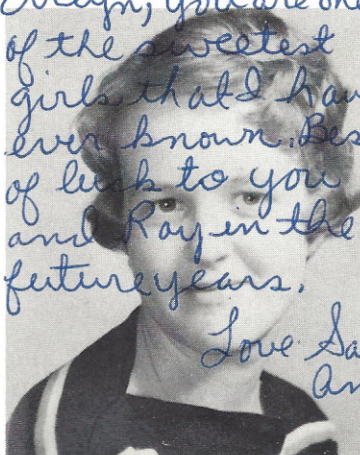 Evelyn, you are one
of the sweetest
girls that I hav
ever known. Bes
of luck to you
and Ray in the
future years.
Love Sa
An